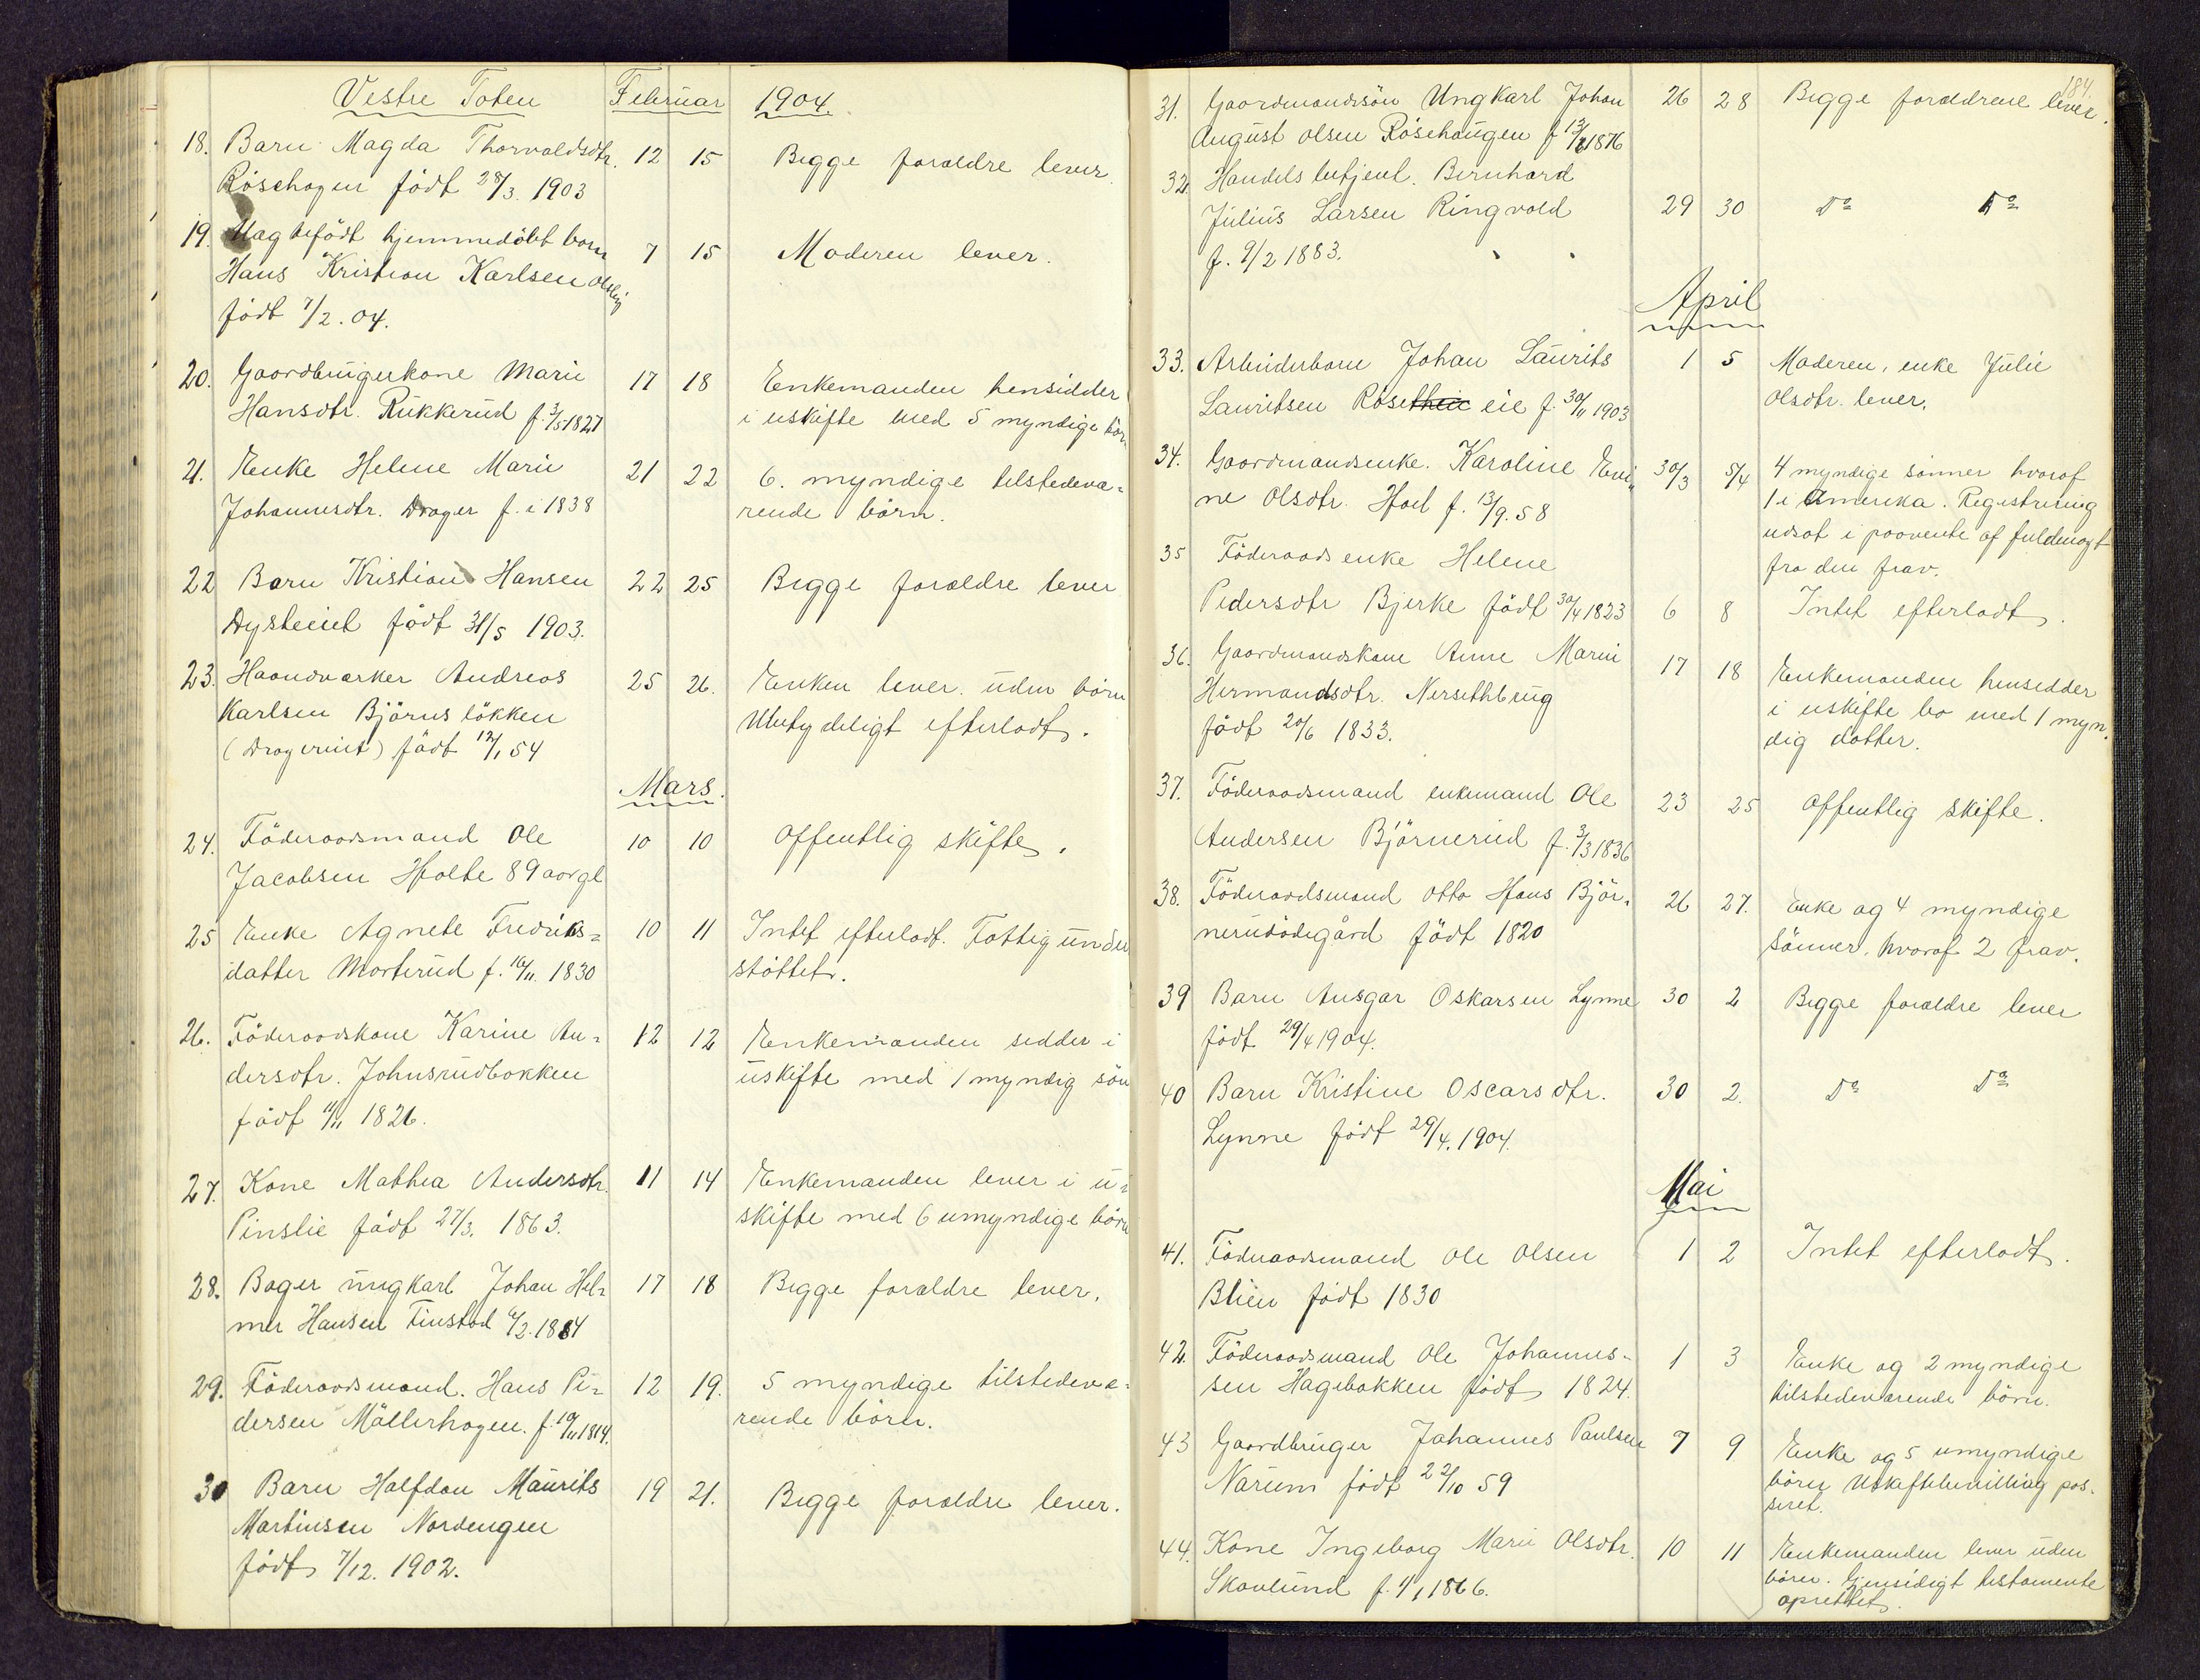 Vestre Toten Februar 1904.
18. Barn Magda Thorvaldsdtr. 12 15 Begge forældre lever.
Röschagen födt 28/3. 1903
19. hjemmedöbt barn 7 15 Moderen lever.
Hans Kristian Karlsen
födt 7/2. 04.
20. Gaardbrugerkone Marie 17 18 Enkemanden hensidder
Hansdtr. Rukkerud f. 3/5 1827 i uskifte med 5 myndige börn
21. Enke Helene Marie 21 22 6. myndige tilstedevæ-
Johannesdtr. Drager f. i 1838 rende börn.
22 Barn Kristian Hansen 22 25 Begge forældre lever
Dysteeiet födt 31/5 1903.
23. Haandværker Andreas 25 26. Enken lever. uden börn
Karlsen Björnslökken Ubetydeligt efterladt.
(Drageriet) födt 12/1 54
Mars.
24. Föderaadsmand Ole 10 10 Offentlig skifte.
Jacobsen Holte 89 aargl
25 Enke Agnete Fredriks- 10 11 Intet efterladt. Fattigunder
datter Morterud f. 16/11. 1830 stöttet.
26. Föderaadskone Karine An- 12 12 Enkemanden sidder i
dersdtr. Johnsrudbakken uskifte med 1 myndig sön
födt 11/11 1826.
27. Kone Mathea Andersdtr. 11 14 Enkemanden lever i u-
Pinslie födt 27/3. 1863. skifte med 6 umyndige börn
28. Bager ungkarl Johan Hel- 17 18 Begge forældre lever.
mer Hansen Finstad 6/2. 1884
29. Föderaadsmand. Hans Pe- 12 19. 5 myndige tilstedevæ-
dersen Möllerhagen. f. 19/11 1814. rende börn.
30 Barn Halfdan Maurits 19 21. Begge forældre lever.
Martinsen Nordengen
födt 7/12. 1902.
184.
31. Gaardmandssön Ungkarl Johan 26 28 Begge forældrene lever.
August Olsen Röschaugen f 13/8 1876
32. Handelsbetjent. Bernhard
Julius Larsen Ringvold 29 30 Do Do
f. 9/2 1883.
April
33. Arbeiderbarn Johan Laurits 1 5 Moderen, enke Julie
Lauritsen Röseth eie f. 30/11 1903 Olsdtr. lever.
34. Gaardmandsenke. Karoline Eve- 30/3 5/4 4 myndige sönner hvoraf
ne Olsdtr. Hoel f. 13/9. 58 1 i Amerika. Registrering
udsat i paavente af fuldmagt
fra den frav.
35 Föderaadsenke Helene
Pedersdtr Bjerke födt 30/4 1823 6 8 Intet efterladt.
36. Gaardmandskone Anne Marie 17 18 Enkemanden hensidder
Hermandsdtr. Nersethbrug i uskifte bo med 1 myn-
födt 20/6 1833. dig datter.
37. Föderaadsmand enkemand Ole 23 25 Offentlig skifte.
Andersen Björnerud f. 3/3 1836
38. Föderaadsmand Otto Hans Björ- 26 27. Enke og 4 myndige
nerudödegård födt 1820 sönner, hvoraf 2 frav.
39 Barn Ansgar Oskarsen Lynne 30 2 Begge forældre lever
födt 29/4 1904.
40 Barn Kristine Oscarsdtr. 30 2. Do Do
Lynne födt 29/4. 1904.
Mai
41. Föderaadsmand Ole Olsen 1 2 Intet efterladt.
Blien födt 1830
42. Föderaadsmand Ole Johannes- 1 3 Enke og 2 myndige
sen Hagebakken födt 1824. tilstedeværende börn.
43 Gaardbruger Johannes Paulsen 7 9 Enke og 5 umyndige
Narum födt 22/10 59 börn Uskiftebevilling pas-
seret.
44. Kone Ingeborg Marie Olsdtr. 10 11 Enkemanden lever uden
Skaulund f. 1/1 1866. börn. Gjensidigt testamente
oprettet.